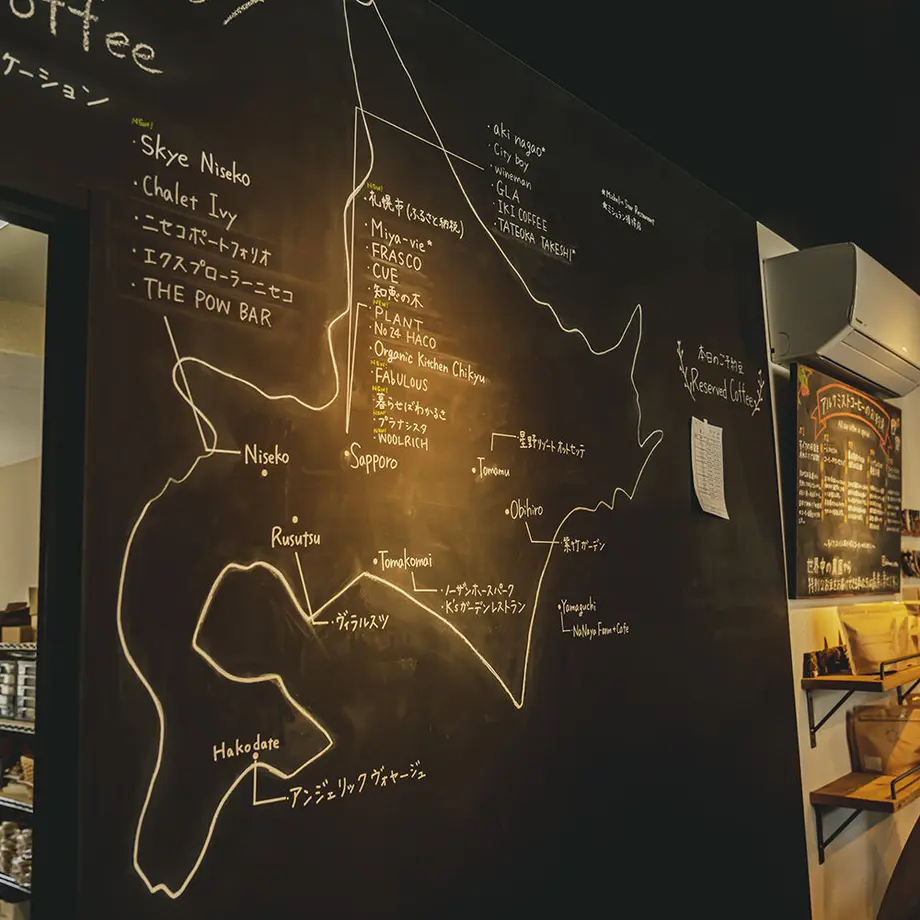 offee
ケーション
NEW!
・Skye Niseko
・Chalet Ivy
・ニセコポートフォリオ
・エクスプローラーニセコ
・THE POW BAR
・aki nagao*
・City boy
・wineman
・GLA
・IKI COFFEE
・TATEOKA TAKESHI*
NEW!
・札幌市(ふるさと納税)
・Miya-vie*
・FRASCO
・CUE
・知恵の木
NEW!
・PLANT
・No24 HACO
・Organic Kitchen Chikyu
NEW!
・FAbULOUS
NEW!
・暮らせばわかるさ
NEW!
・プラナシスタ
NEW!
・WOOLRICH
本日のご予約豆
Reserved Coffee
Niseko
Sapporo
Tomamu
・星野リゾート ホットモッテ
Obihiro
・紫竹ガーデン
Rusutsu
・ヴィラルスツ
Tomakomai
・ノーザンホースパーク
・K'sガーデンレストラン
Yamaguchi
・NoNoyo Farm+Cafe
Hakodate
・アンジェリック ヴォヤージュ
アルケミストコーヒーの
世界中の農園から